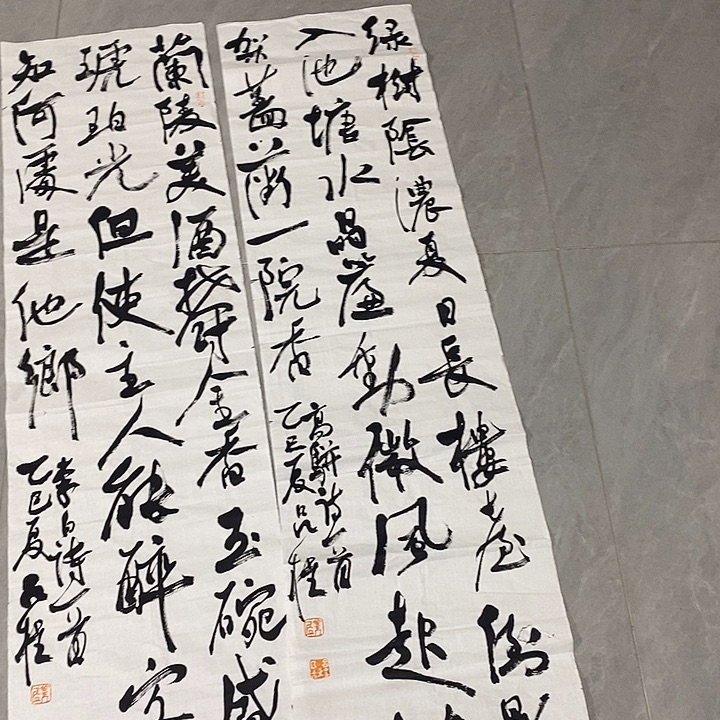 绿樹陰濃夏日長樓台倒影
入池塘水晶簾動微風起
架蔷薇一院香
高駢詩一首
乙巳夏
蘭陵美酒鬱金香玉碗盛
琥珀光但使主人能醉客
知何處是他鄉
李白詩一首
乙巳夏